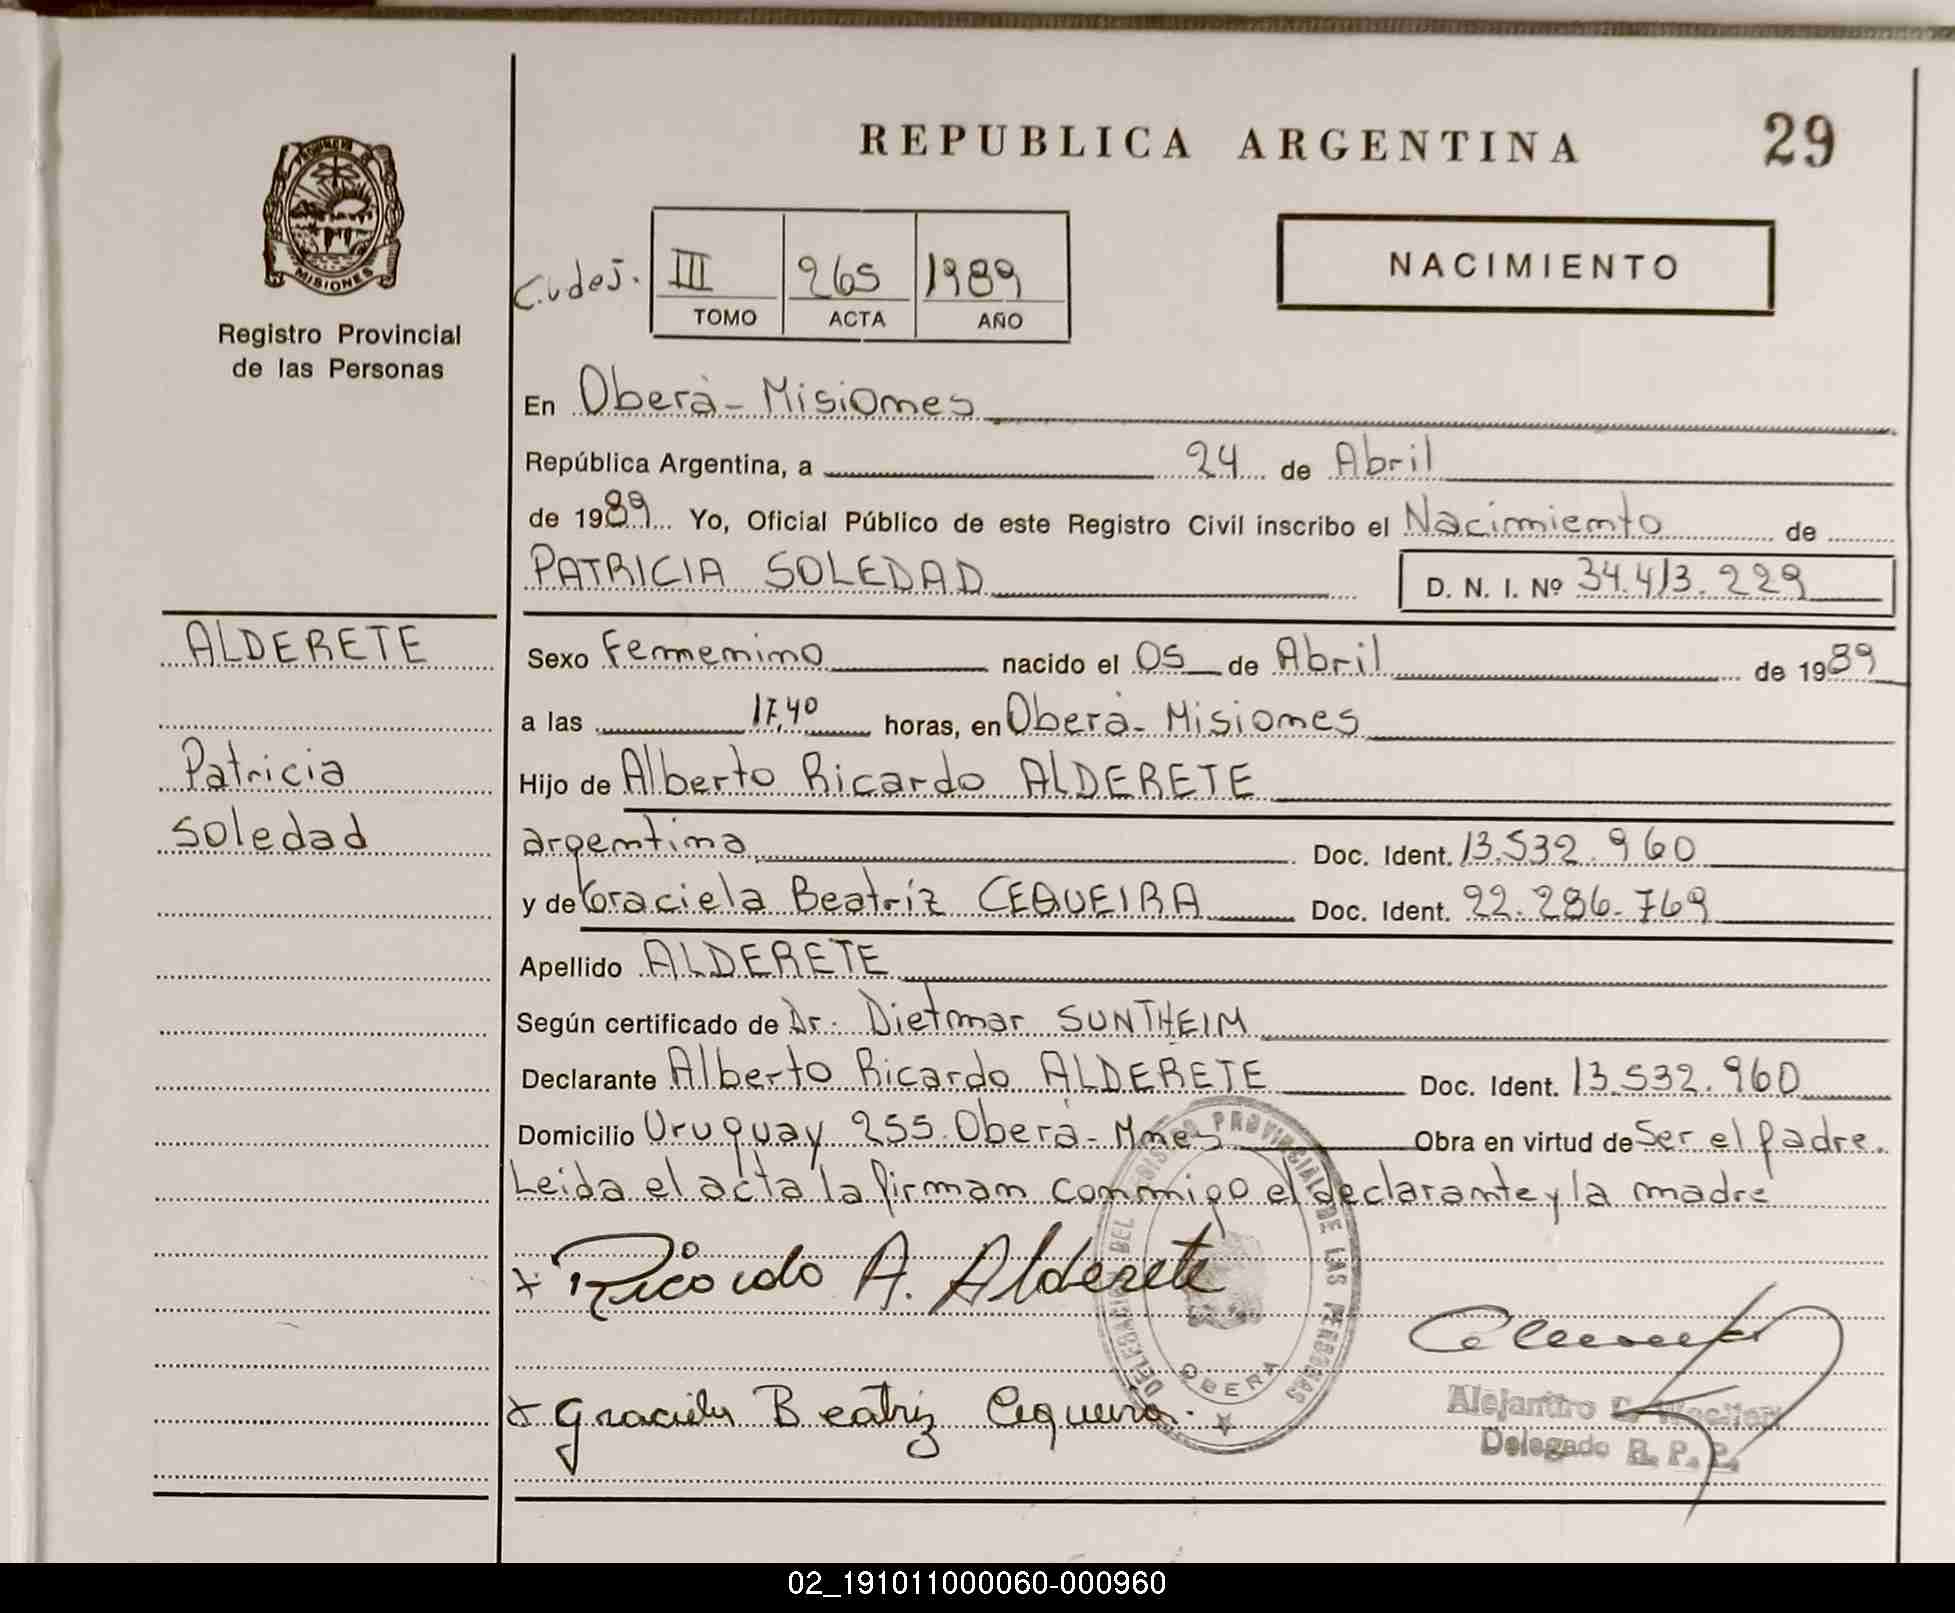 REPUBLICA ARGENTINA
29
PROVINCIA DE
MISIONES
Registro Provincial
de las Personas
III 265 1989
TOMO ACTA AÑO
NACIMIENTO
En Oberà - Misiones
República Argentina, a 24 de Abril
de 1989 Yo, Oficial Público de este Registro Civil inscribo el Nacimiento de
PATRICIA SOLEDAD D. N. I. Nº 34.413.229
ALDERETE
Patricia
Soledad
Sexo Femenino nacido el 05 de Abril de 1989
a las 17,40 horas, en Oberà - Misiones
Hijo de Alberto Ricardo ALDERETE
argentina Doc. Ident. 13.532.960
y de Graciela Beatríz CEQUEIRA Doc. Ident. 22.286.769
Apellido ALDERETE
Según certificado de Dr. Dietmar SUNTHEIM
Declarante Alberto Ricardo ALDERETE Doc. Ident. 13.532.960
Domicilio Uruguay 255. Oberà - Mnes Obra en virtud de Ser el padre.
Leida el acta la firman conmigo el declarante y la madre
x Ricardo A. Alderete
x Graciela Beatriz Cequeira.
DELEGACION DEL REGISTRO PROVINCIAL DE LAS PERSONAS
OBERA
Alejandro
Delegado R. P. P.
02_191011000060-000960